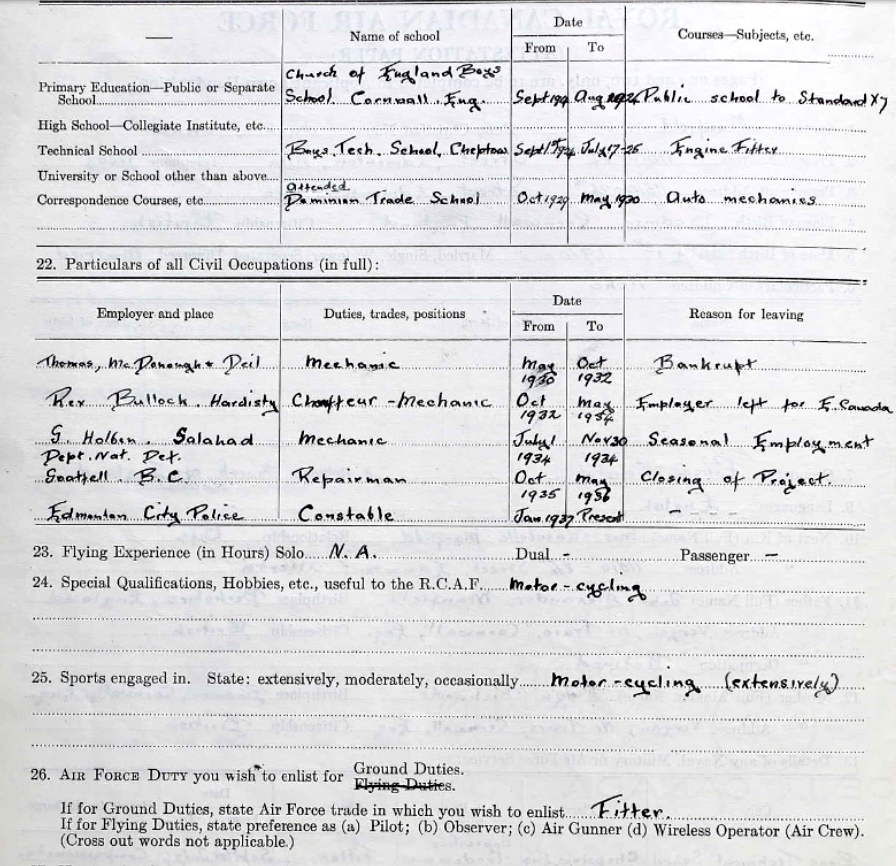 Name of school
Date
From To
Courses—Subjects, etc.
Primary Education—Public or Separate School
Church of England Boys
School. Cornwall. Eng. Sept Aug 1924 Public school to Standard
High School—Collegiate Institute, etc.
Technical School Boys. Tech. School, Chepstow Sept 1st 1924 July 17-25 Engine Fitter
University or School other than above
Correspondence Courses, etc. attended
Dominion Trade School Oct 1929 May 1930 Auto mechanics
22. Particulars of all Civil Occupations (in full):
Employer and place Duties, trades, positions Date Reason for leaving
From To
Thomas, McDonough & Deil Mechanic May 1930 Oct 1932 Bankrupt
Rex Bullock. Hardisty Chauffeur-Mechanic Oct 1932 May 1934 Employer left for E. Canada
G. Holben. Salahad Mechanic July 1 1934 Nov 30 1934 Seasonal Employment
Dept. Nat. Def.
Goatfell. B.C. Repairman Oct 1935 May 1936 Closing of Project.
Edmonton City Police Constable Jan. 1937 Present - - - -
23. Flying Experience (in Hours) Solo N. A. Dual - Passenger -
24. Special Qualifications, Hobbies, etc., useful to the R.C.A.F. Motor-cycling
25. Sports engaged in. State: extensively, moderately, occasionally Motor-cycling (extensively)
26. AIR FORCE DUTY you wish to enlist for Ground Duties.
Flying Duties.
If for Ground Duties, state Air Force trade in which you wish to enlist Fitter.
If for Flying Duties, state preference as (a) Pilot; (b) Observer; (c) Air Gunner (d) Wireless Operator (Air Crew).
(Cross out words not applicable.)